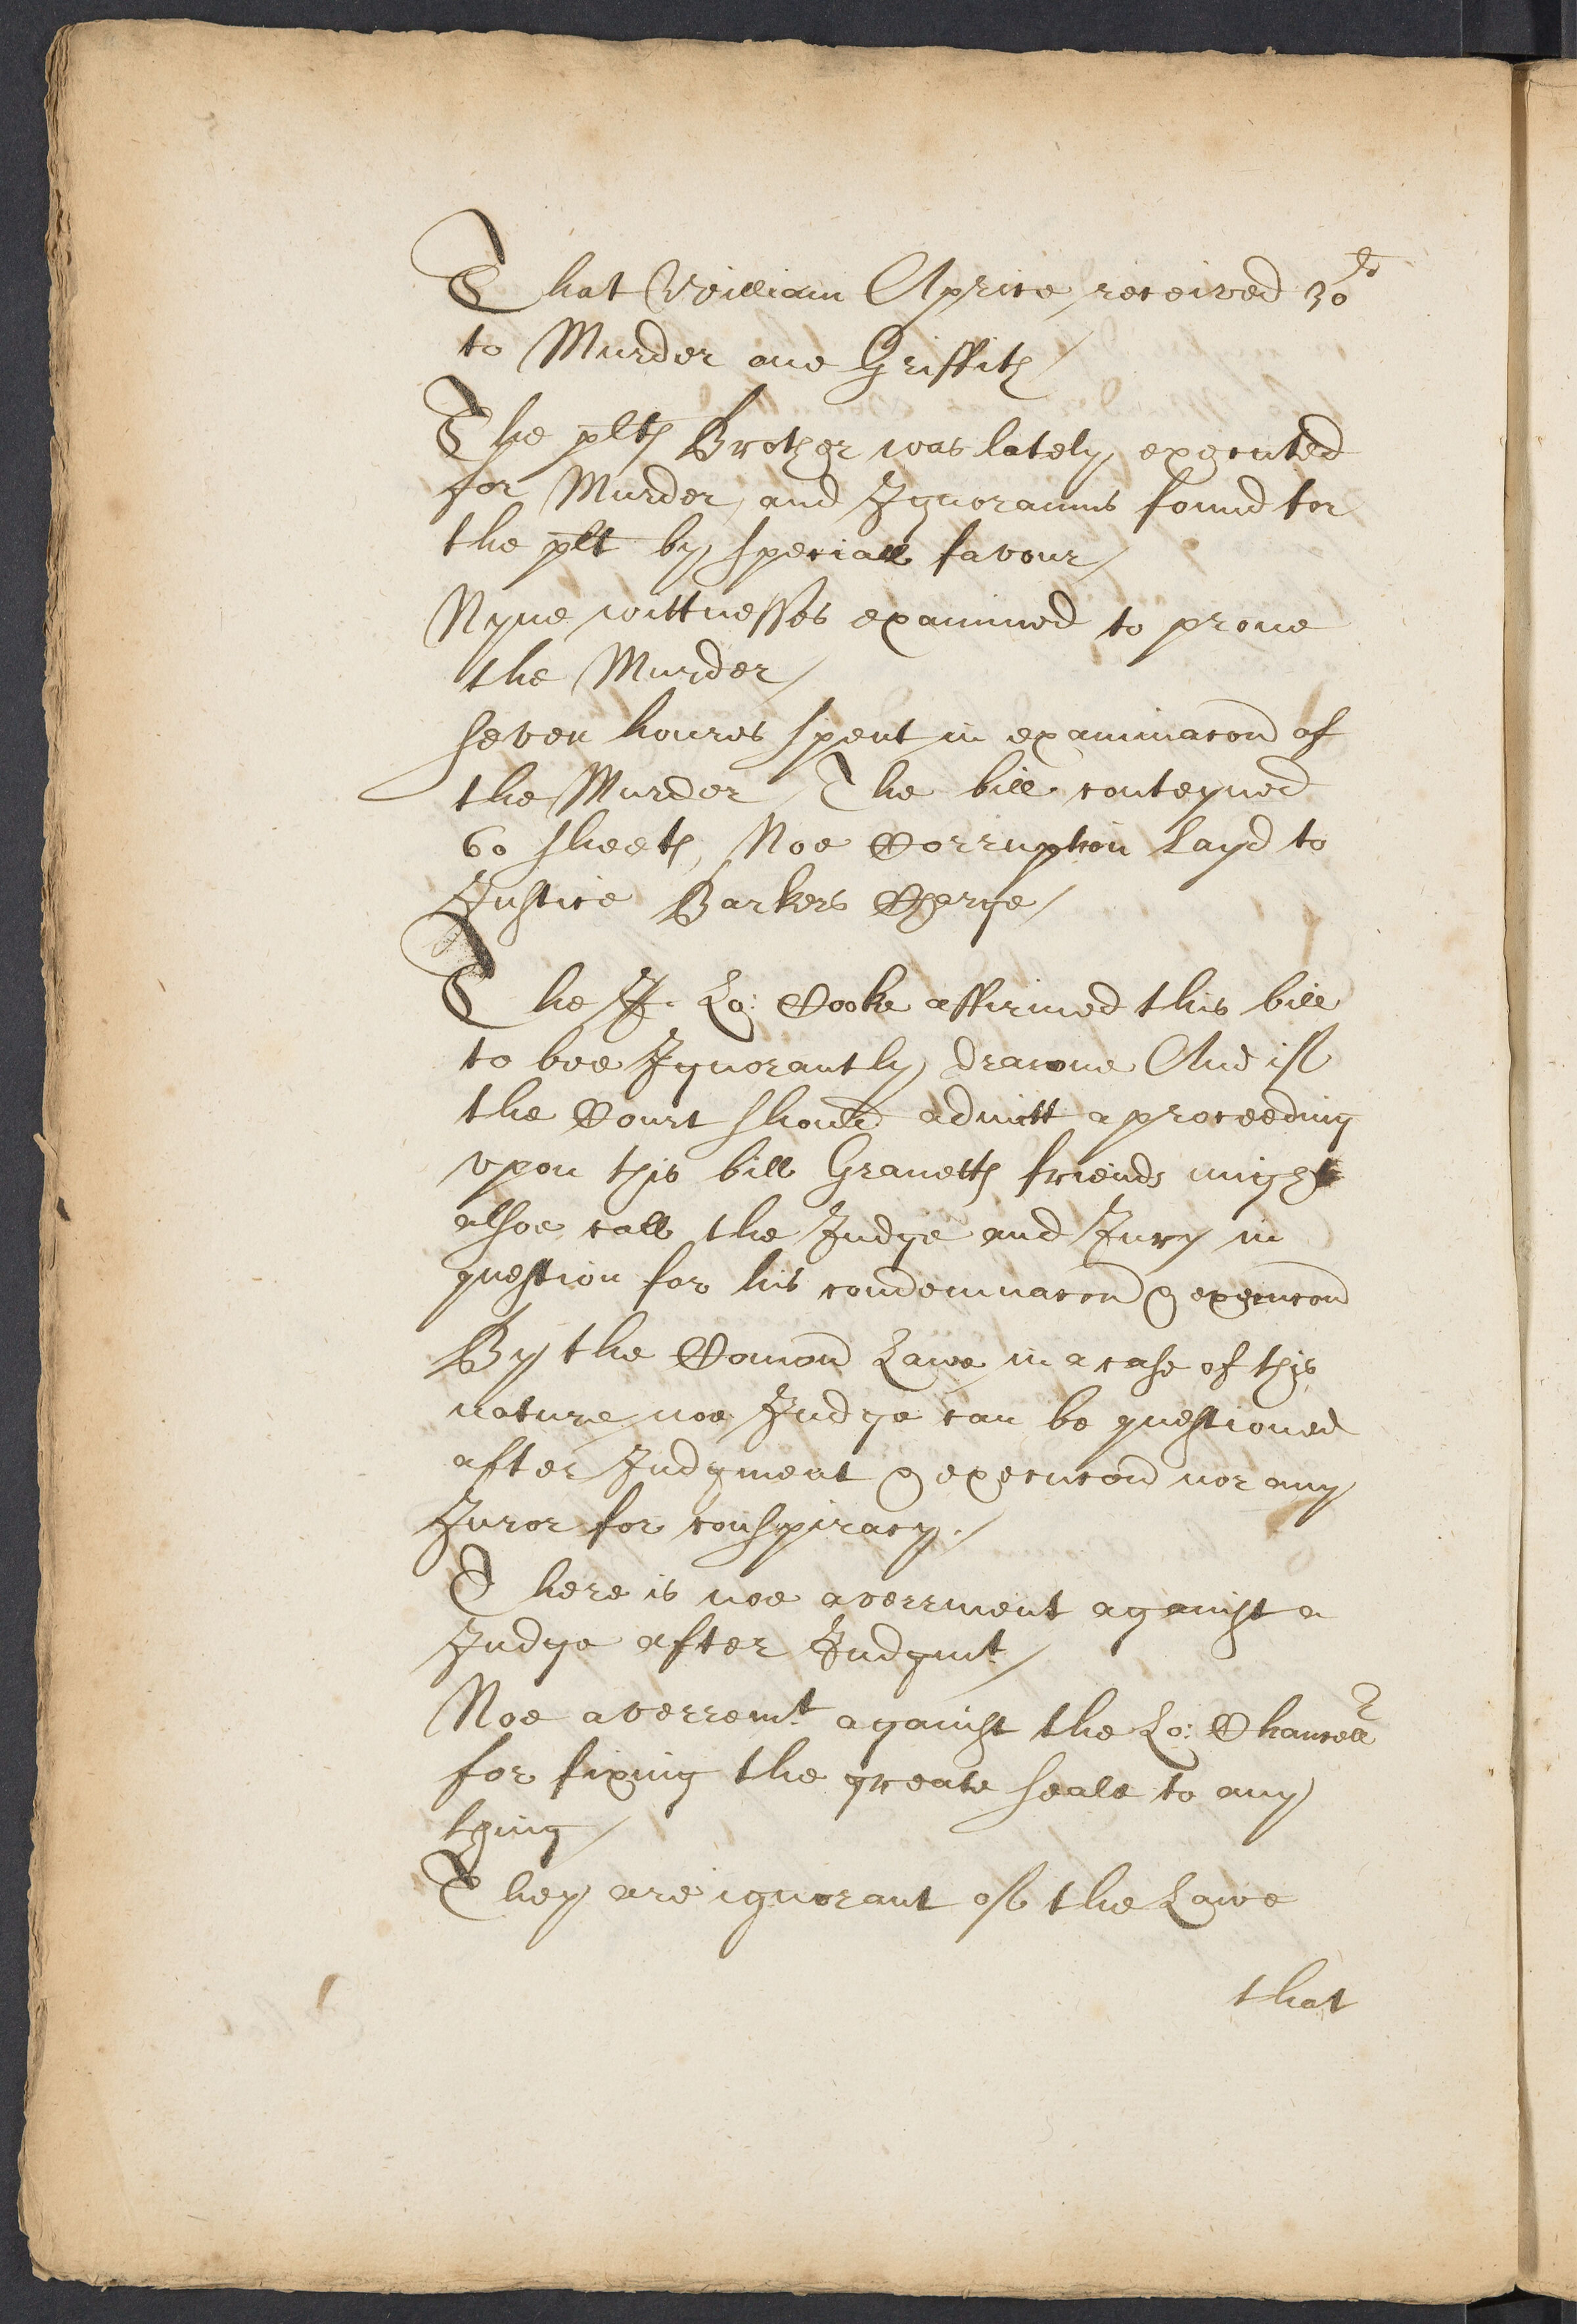 That William Aprice received 30ˡⁱ
to Murder one Griffith
The plts Brother was lately executed
for Murder, and Ignoramus found for
the plt by speciall favour
Nyne wittnesses examined to prove
the Murder
seven houres spent in examinacon of
the Murder The bill conteyned
60 sheets, Noe Corruption Layd to
Justice Barkers Charge
The Lo: Cooke affirmed this bill
to bee Ignorantly drawne And if
the Court should admitt a proceeding
vpon this bill friends might
alsoe call the Judge and Jury in
question for his condemnacon & execucon
By the Comon Lawe in a case of this
nature noe Judge can be questioned
after Judgment & execucon nor any
Juror for conspiracy.
There is noe averrment against a
Judge after Judgmt
Noe averremt against the Lo: Chancellr
for fixing the greate seale to any
thing
They are ignorant of the Lawe
that